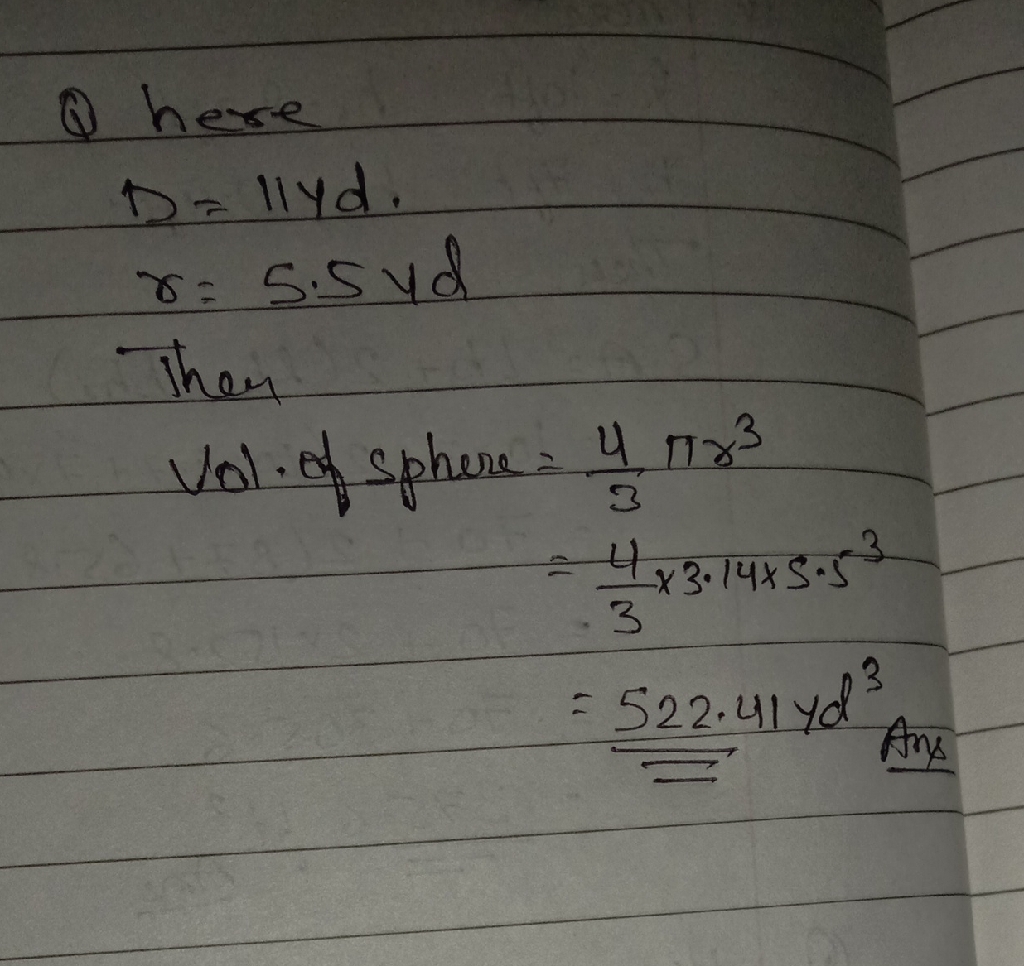 Q here
D = 11yd.
r = 5.5 yd
Then
Vol. of sphere = 4/3 πr³
= 4/3 x 3.14 x 5.5³
= 522.41 yd³ Ans